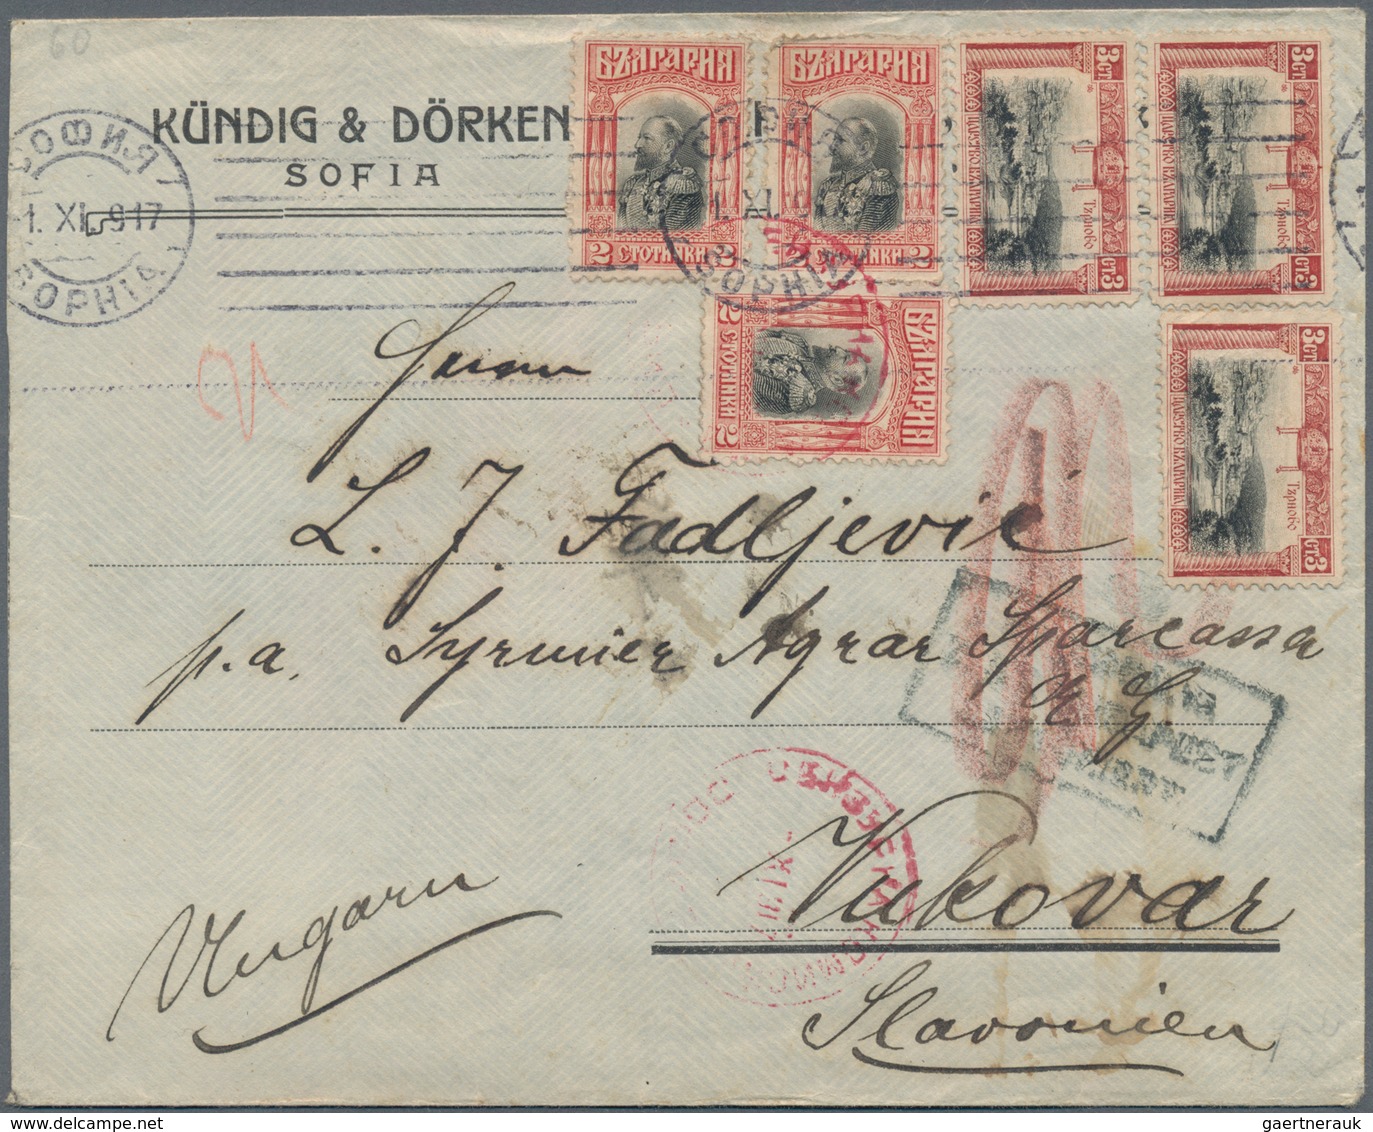 60
KÜNDIG & DÖRKEN
SOFIA
СОФИЯ
1. XI. 917
SOPHIA
БЪЛГАРИЯ
2 СТОТИНКИ 2
БЪЛГАРИЯ
2 СТОТИНКИ 2
3 СТ
ЦАРСТВО БЪЛГАРИЯ
Търново
СТ 3
3 СТ
ЦАРСТВО БЪЛГАРИЯ
Търново
СТ 3
SOPHIA
БЪЛГАРИЯ
2 СТОТИНКИ 2
3 СТ
ЦАРСТВО БЪЛГАРИЯ
Търново
СТ 3
Herrn
L. J. Fadljević
p.a. Syrmier Agrar Sparcassa
A. G.
Vukovar
Ungarn
Slavonien
gaertnerauk
gaertnerauk